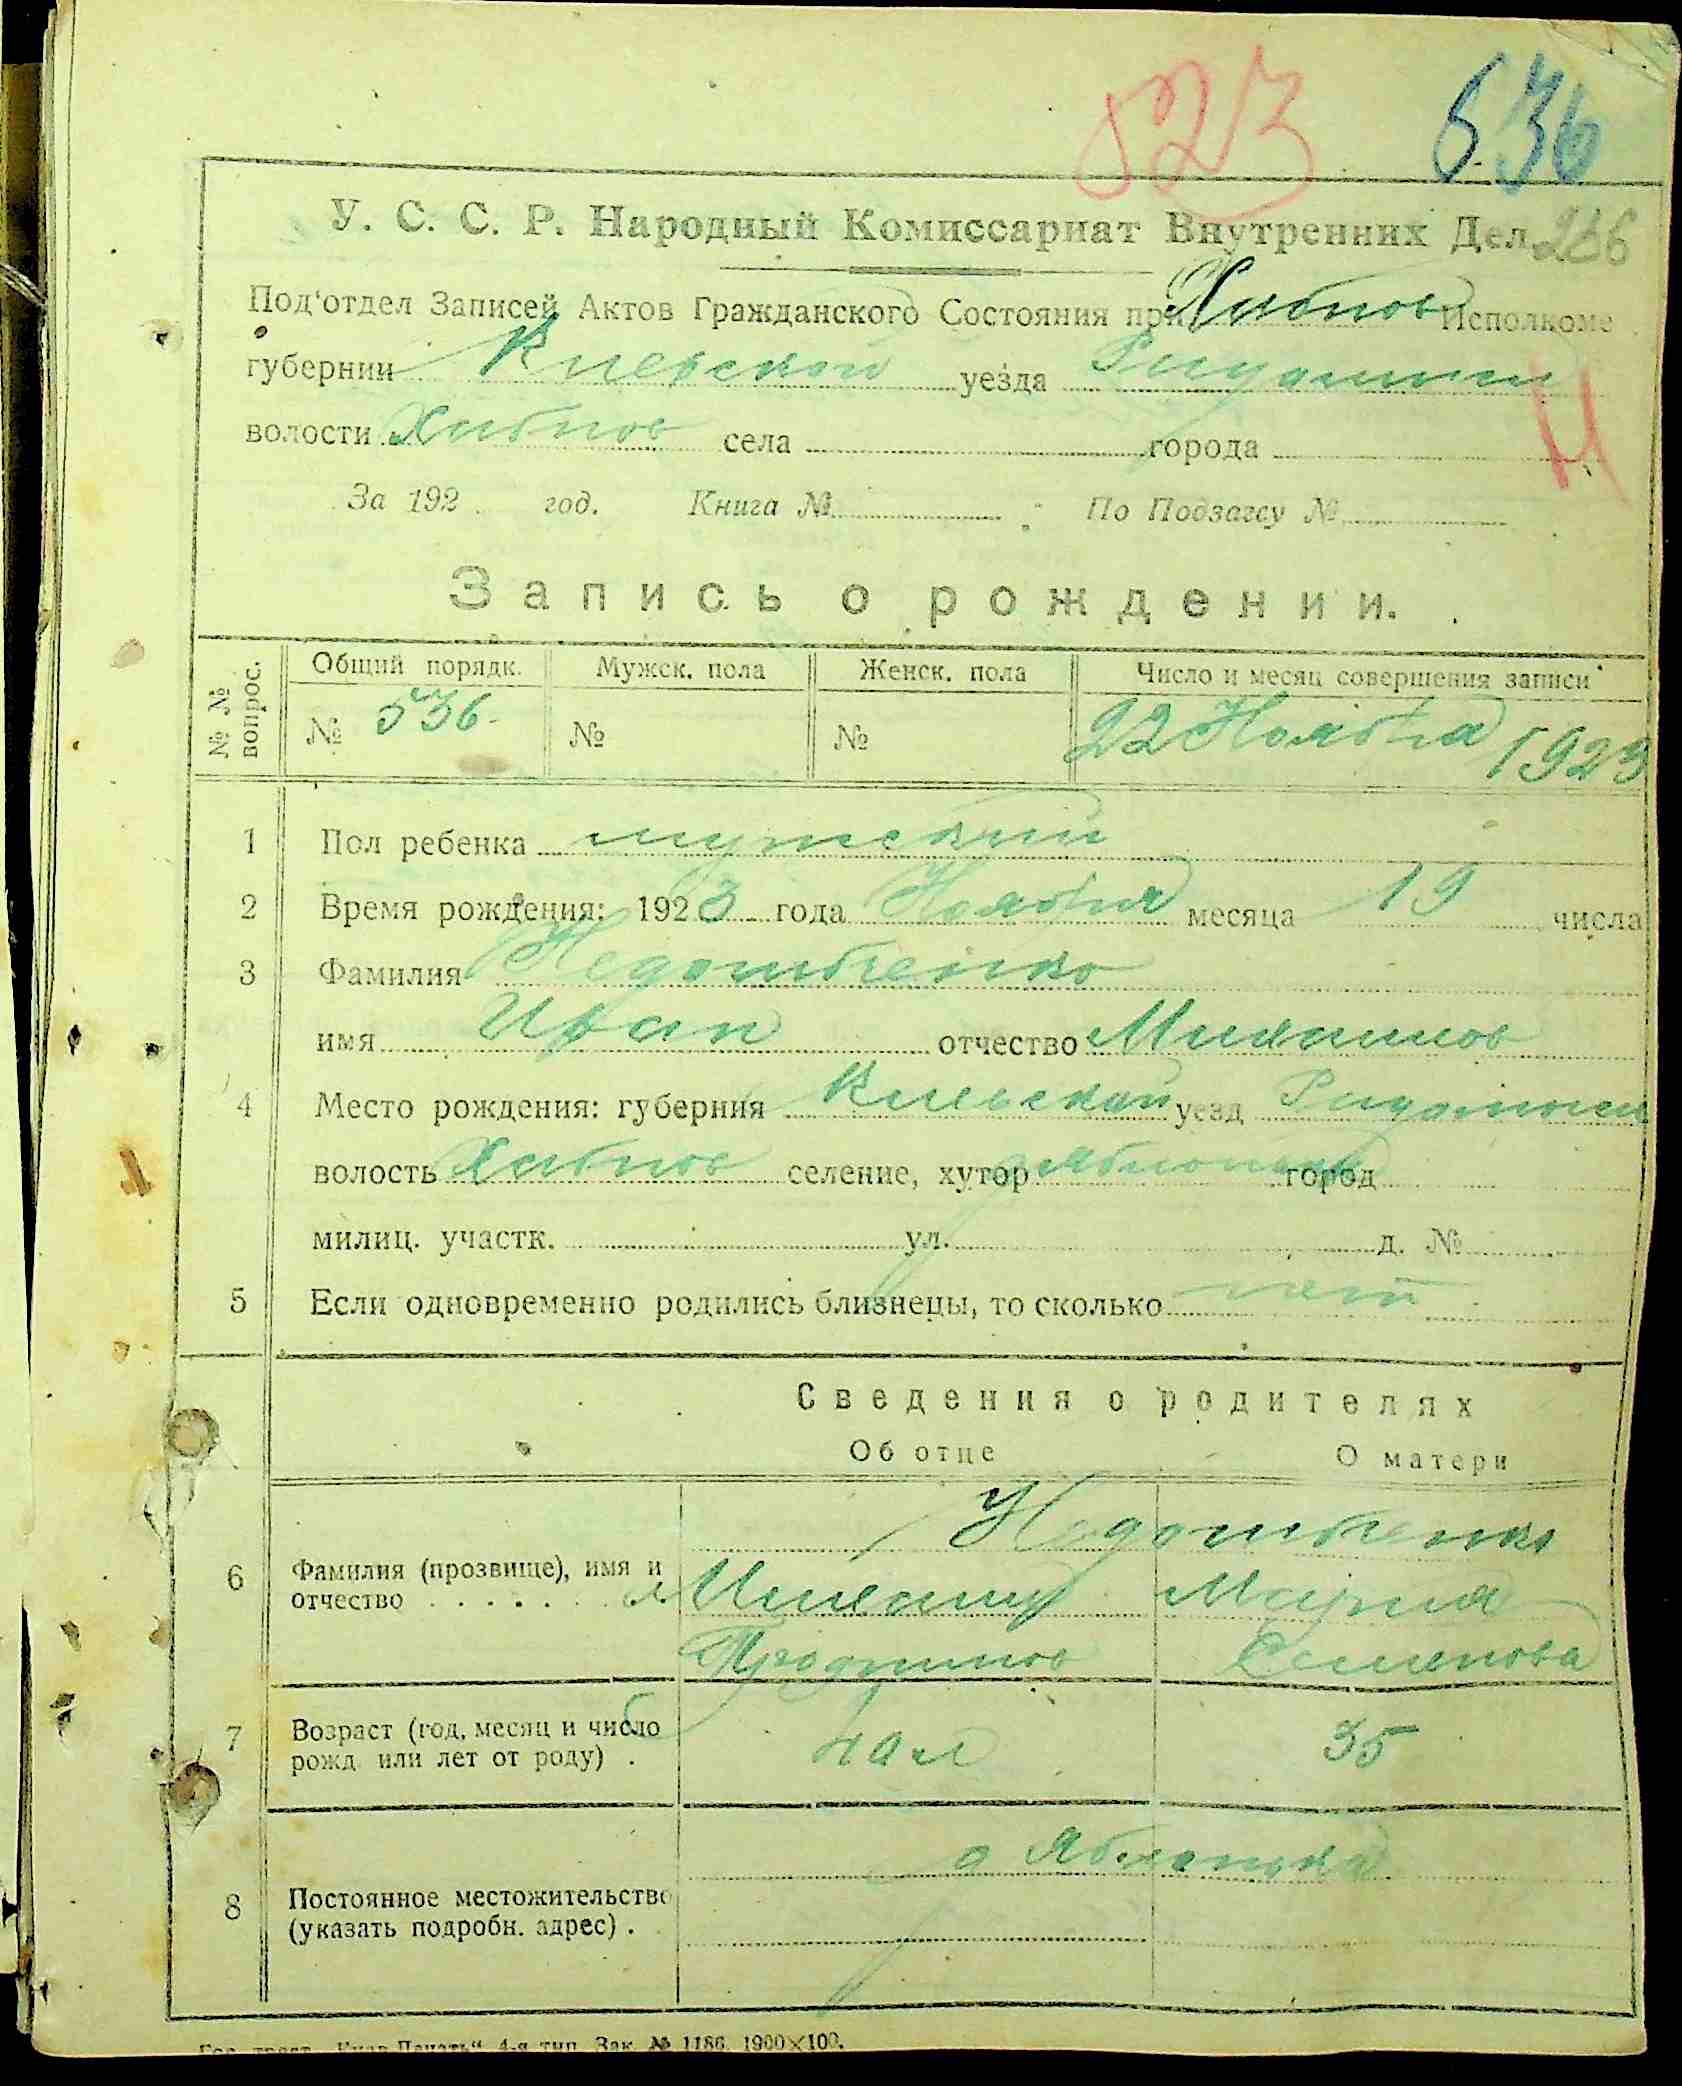 523 536
У. С. С. Р. Народный Комиссариат Внутренних Дел. 266
Под'отдел Записей Актов Гражданского Состояния при Хабнов Исполкоме
губернии Киевской уезда Радомысл
волости Хабнов села города
За 192 . год. Книга № По Подзагсу №
Запись о рождении.
№ № вопрос. Общий порядк. Мужск. пола Женск. пола Число и месяц совершения записи
№ 536 № № 22 Ноября 1923
1 Пол ребенка мужский
2 Время рождения: 1923 года Ноября месяца 19 числа
3 Фамилия
имя Иван отчество
4 Место рождения: губерния Киевской уезд Радомысл
волость Хабнов селение, хутор город
милиц. участк. ул. д. №
5 Если одновременно родились близнецы, то сколько нет
Сведения о родителях
Об отце О матери
6 Фамилия (прозвище), имя и
отчество Мария
Семенова
7 Возраст (год, месяц и число
рожд. или лет от роду) . 35
8 Постоянное местожительство
(указать подробн. адрес) .
4-я тип. Зак. № 1186. 1900×100.